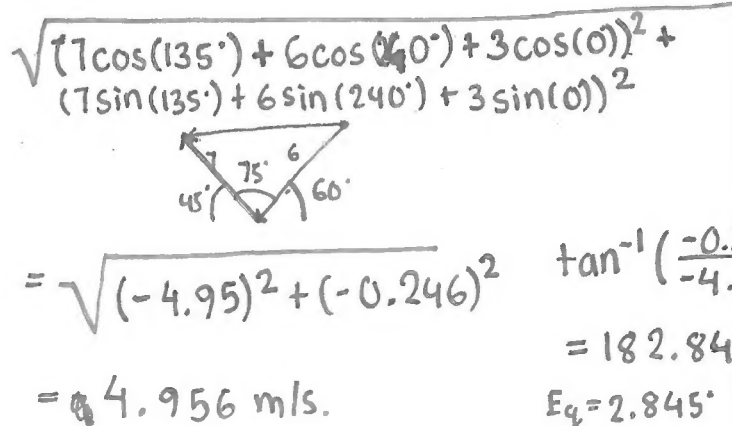 √((7cos(135°) + 6cos(240°) + 3cos(0))² +
(7sin(135°) + 6sin(240°) + 3sin(0))²
7 75° 6
45° 60°
= √((-4.95)² + (-0.246)²
tan⁻¹(-0./-4.
= 182.84
= 4.956 m/s.
Eq = 2.845°